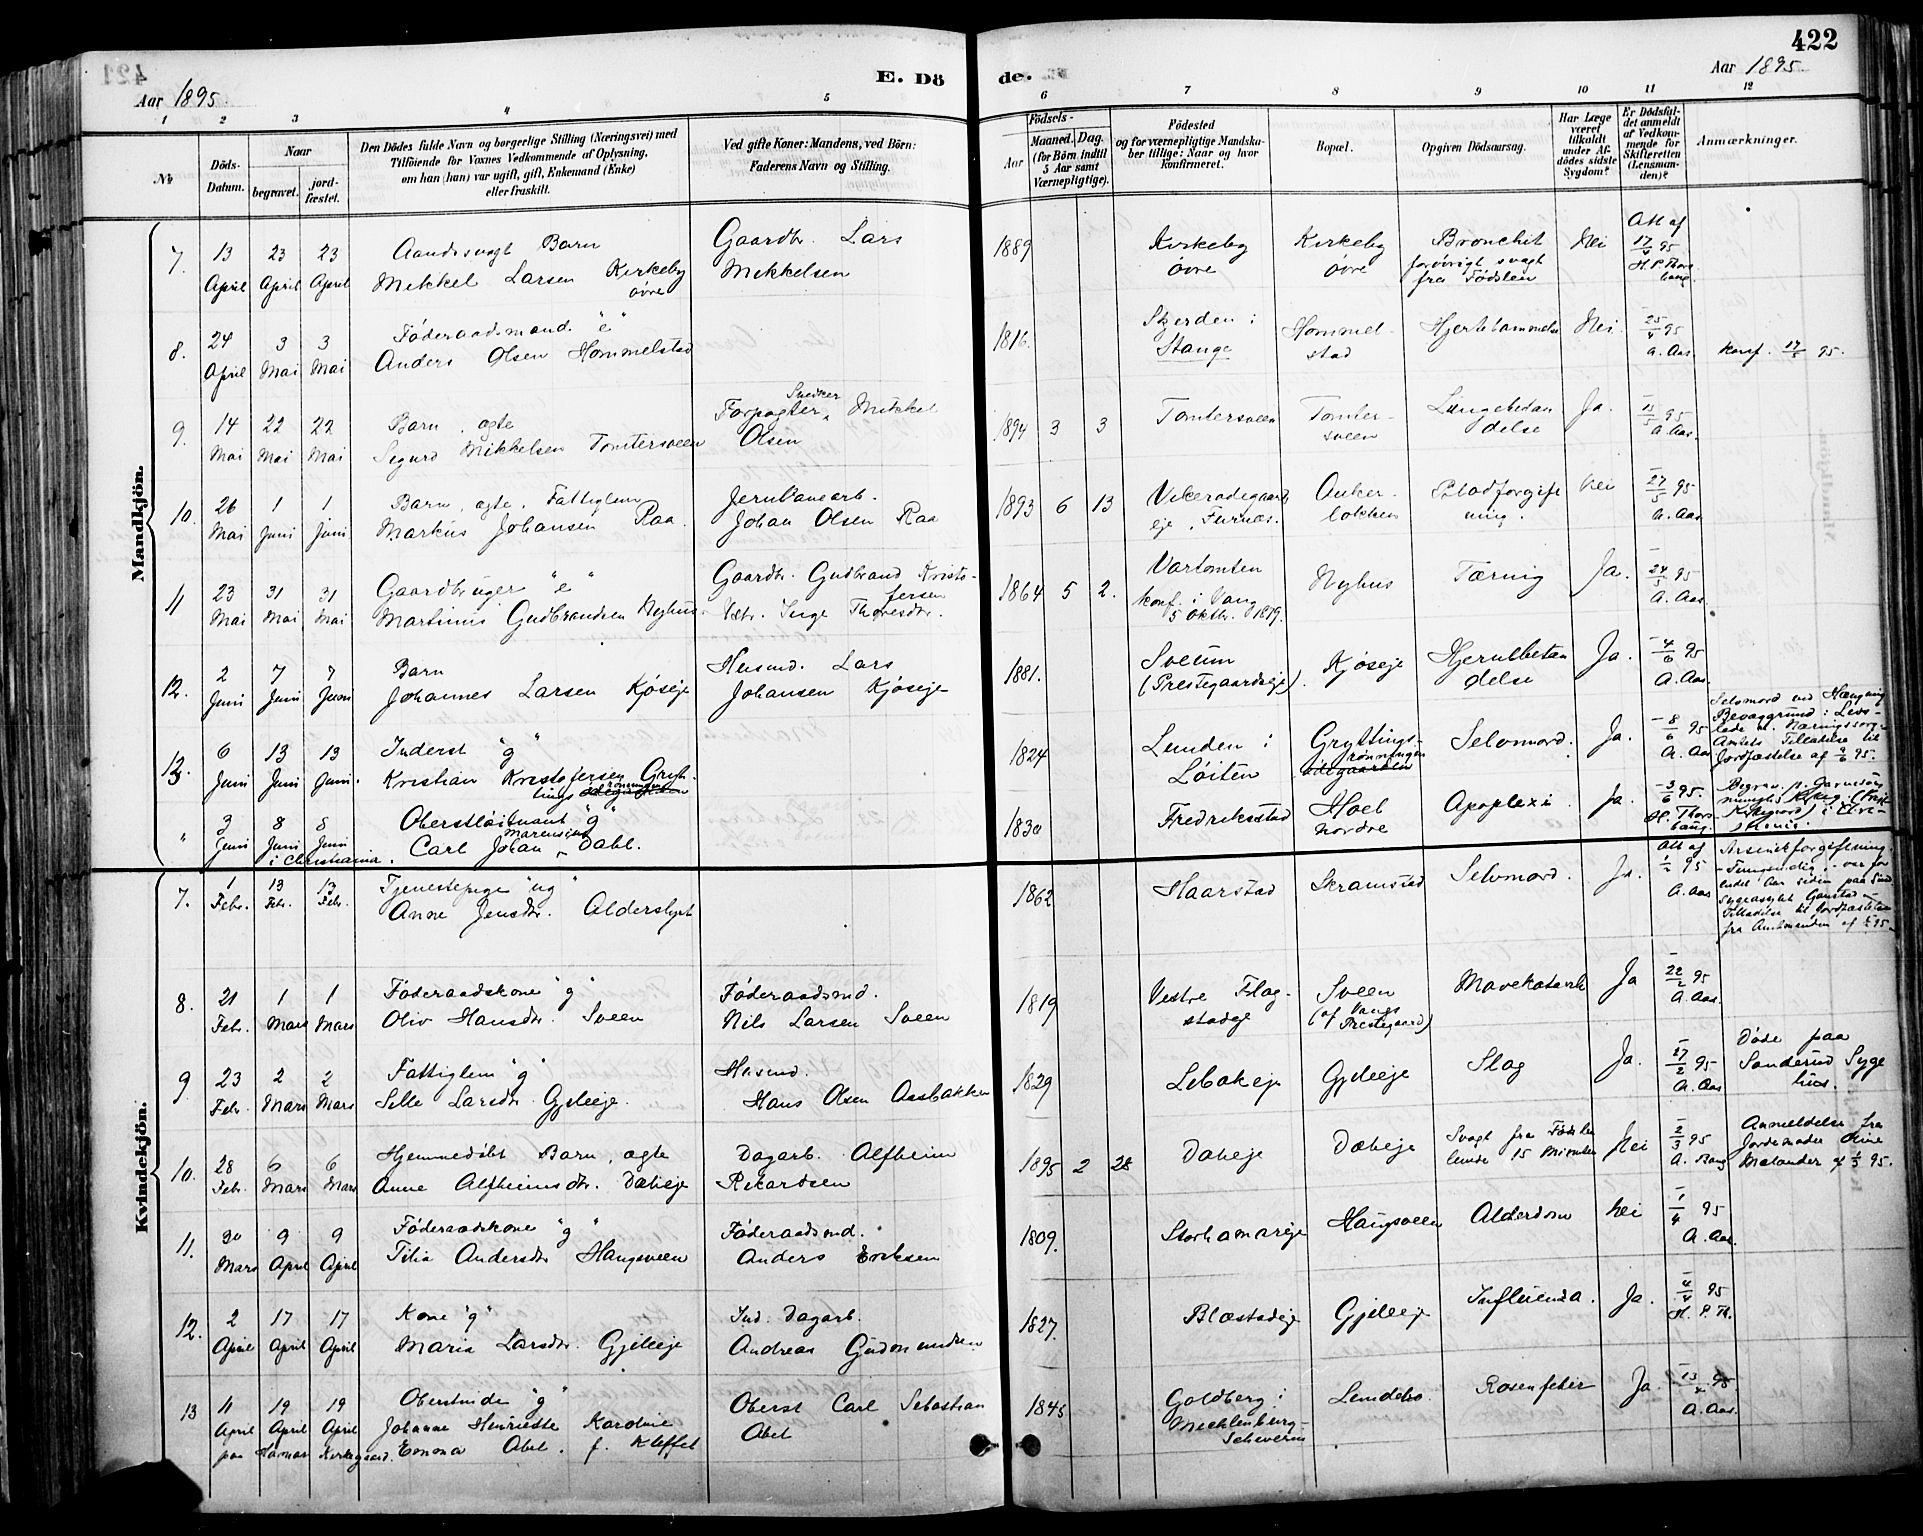 421
422
E. Dö
de.
Aar 1895.
Aar 1895
1 2 3 4 5 6 7 8 9 10 11 12
№
Döds-Datum.
Naar
begravet.
jord-fæstet.
Den Dödes fulde Navn og borgerlige Stilling (Næringsvei) med
Tilföiende for Voxnes Vedkommende af Oplysning,
om han (hun) var ugift, gift, Enkemand (Enke)
eller fraskilt.
Ved gifte Koner: Mandens, ved Börn:
Faderens Navn og Stilling.
Födsels-
Aar
Maaned. Dag.
(for Börn indtil
5 Aar samt
Værnepligtige).
Födested
og for værnepligtige Mandska-
ber tillige: Naar og hvor
konfirmeret.
Bopæl.
Opgiven Dödsaarsag.
Har Læge
været
tilkaldt
under Af-
dödes sidste
Sygdom?
Er Dödsfal-
det anmeldt
af Vedkom-
mende for
Skifteretten
(Lensman-
den)?
Anmærkninger.
Mandkjön.
7. 13 April 23 April 23 April
Aandssvagt Barn
Mikkel Larsen Kirkeby
øvre
Gaardbr. Lars
Mikkelsen
1889
Kirkeby
øvre
Kirkeby
øvre
Bronchit
forøvrigt svagt
fra Fødslen
Nei
Att af
17/4 95
H. P. Thors
haug
8. 24 April 3 Mai 3 Mai
Føderaadsmand "e"
Anders Olsen Hommelstad
1816.
Skjerden i
Stange
Hommel-
stad
Hjertelammelse
Nei
25/4 95
A. Aas.
Konf. 17/5 95.
9. 14 Mai 22 Mai 22 Mai
Barn, ægte
Sigurd Mikkelsen Tomtersveen
Sneiker
Forpagter, Mikkel
Olsen
1894 3 3
Tomtersveen
Tomter-
sveen
Lungebetæn
delse
Ja.
15/5 95
A. Aas.
10. 26 Mai 1 Juni 1 Juni
Barn, ægte, Fattiglem
Markus Johansen Raa.
Jernbanearb.
Johan Olsen Raa
1893 6 13
Vikerødegaard
eje, Furnæs.
Anker-
løkken
Blodforgift
ning.
Nei
27/5 95
A. Aas.
11 23 Mai 31 Mai 31 Mai
Gaardbruger "e"
Martinus Gudbrandsen Nyhus.
Gaardbr. Gudbrand Kristo-
fersen
Vstr. Inge Thoresdtr.
1864 5 2.
Vartomten
konf. i Vang
5 Oktbr. 1879.
Nyhus
Tæring
Ja.
24/5 95
A. Aas.
12. 2 Juni 7 Juni 7 Juni
Barn
Johannes Larsen Kjøseje
Husmd. Lars
Johansen Kjøseje
1881.
Sveum
(Prestegaardseje).
Kjøseje
Hjernebetæn
delse
Ja.
4/6 95
A. Aas.
13. 6 Juni 13 Juni 13 Juni.
Inderst "g"
Kristian Kristofersen Gryt-
tings rønningen
1824
Lunden i
Løiten
Gryttings-
rønningen
ødegaarden
Selvmord.
Ja.
8/6 95
A. Aas
Selvmord ved Hængning
Bevæggrund: Livs-
lede og Næringssorg
Amtets Tilladelse til
Jordfæstelse af 9/6 95.
" 3 Juni 8 Juni 8 Juni
i Christiania.
Oberstløitnant "g"
Marensius
Carl Johan Dahl.
1830
Fredriksstad
Hoel
nordre
Apoplexi
Ja.
3/6 95.
H. Thors
haug.
Kvindekjön.
7. 1 Febr. 13 Febr. 13 Febr.
Tjenestepige "ug"
Anne Jensdtr. Alderslyst
1862
Haarstad
Skramstad
Selvmord.
Ja.
Att af
1/2 95
A. Aas
Arsenikforgiftning.
8. 21 Febr. 1 Mars 1 Mars
Føderaadskone "g"
Oliv Hansdtr. Sveen
Føderaadsmd.
Nils Larsen Sveen
1819
Vestre Flag-
stadeje
Sveen
(af Vangs
Prestegaard)
Mavekatarrh
Ja
22/2 95
A. Aas.
9 23 Febr. 2 Mars 2 Mars
Fattiglem "g"
Sille Larsdtr Gjeleeje.
Husmd.
Hans Olsen Aasbakken
1829
Lebokeje
Gjeleeje
Slag
Ja.
27/2 95
A. Aas
Døde paa
Sanderud Syge
hus.
10. 28 Febr. 6 Mars 6 Mars
Hjemmedøbt Barn, ægte
Anne Alfheimsdtr. Dæleje
Dagarb. Alfheim
Rikardsen
1895 2 28
Dæleje
Dæleje
Svagt fra Fødslen
levde 15 Minuter
Nei
2/3 95
A. Bang
Anmeldelse fra
Jordemoder Oline
Melander af 1/3 95.
11. 30 Mars 9 April 9 April
Føderaadskone "g"
Tilia Andersdtr Haugsveen
Føderaadsmd.
Anders Eriksen
1809.
Storhamareje
Haugsveen
Alderdom
Nei
1/4 95
A. Aas.
12. 2 April 17 April 17 April
Kone "g"
Maria Larsdtr. Gjeleeje
Ind. Dagarb.
Andreas Gudmundsen
1827.
Blæstadeje
Gjeleeje
Influenza.
Ja.
4/4 95
H. P. Th.
13 11 April 19 April 19 April
paa Hamar Kirkegaard.
Oberstinde "g"
Johanne Henriette Karoline
Emma Abel. f. Kleffel
Oberst Carl Sebastian
Abel
1845
Goldberg i
Mecklenburg-
Schwerin
Lundebo.
Rosenfeber
Ja.
13/4 95
A. Aas.